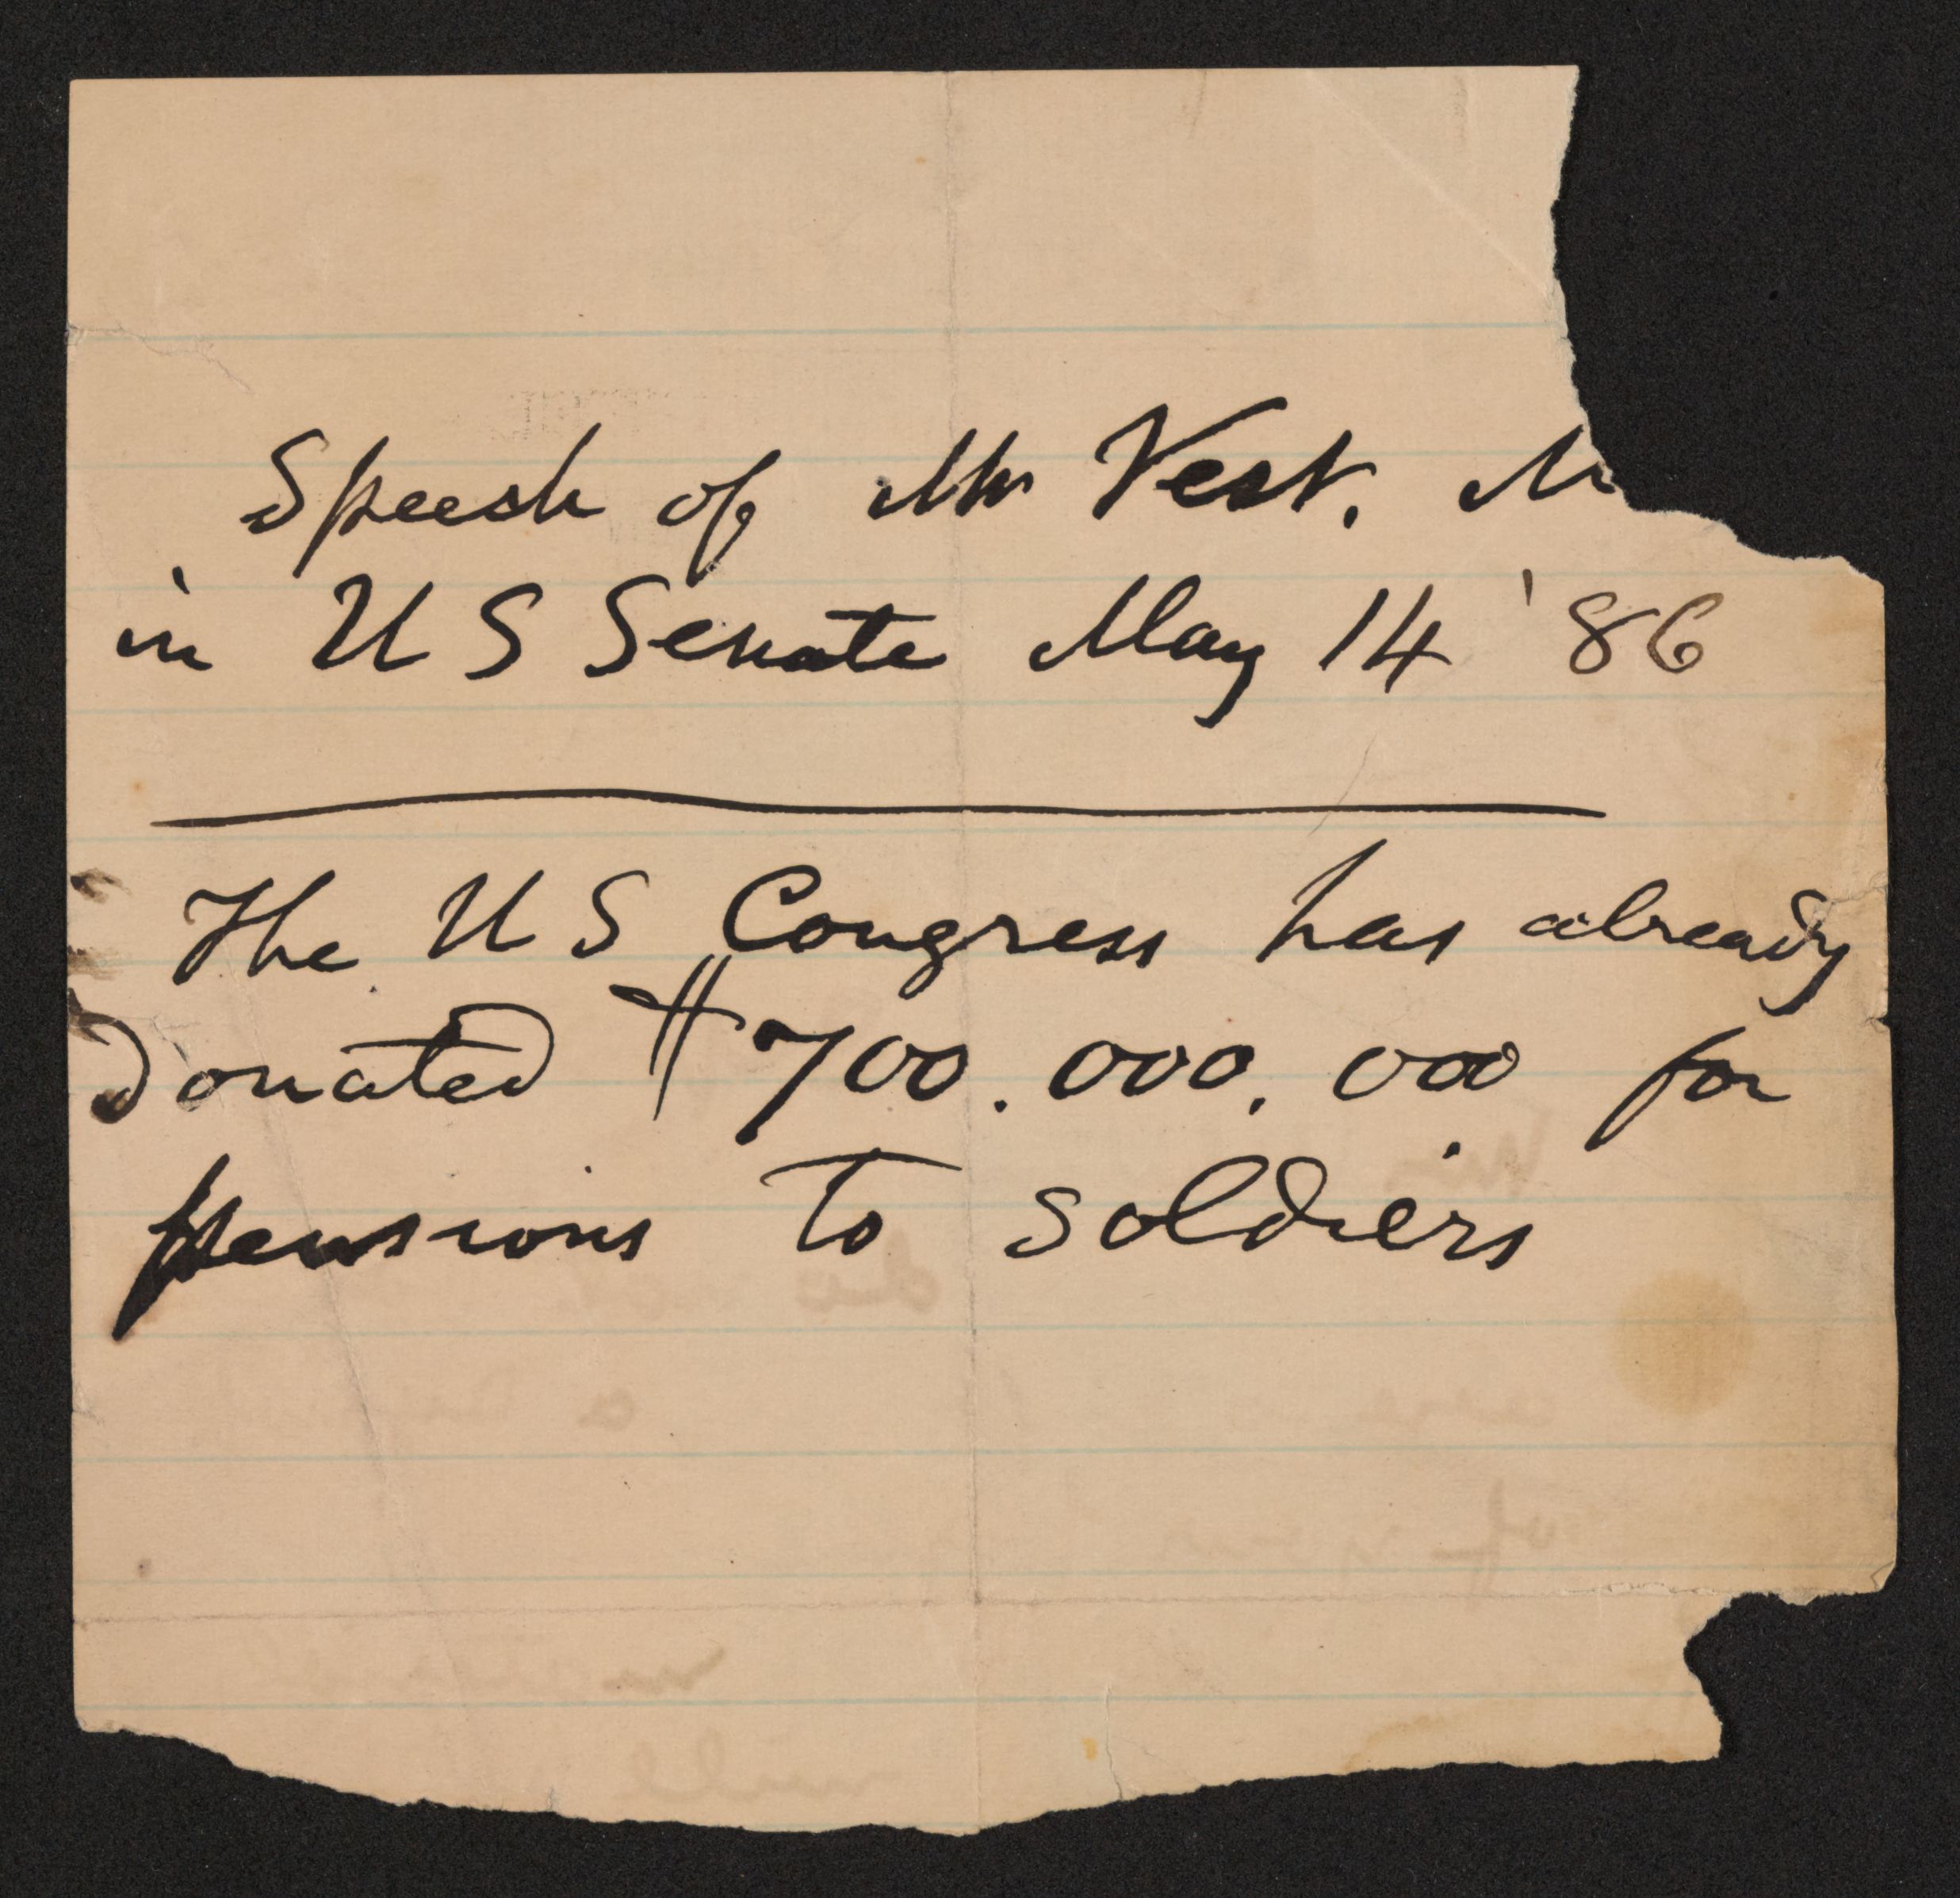 Speech of Mr Vest. M
in U S Senate May 14 '86
The U S Congress has already
donated $700.000.000 for
pensions to soldiers